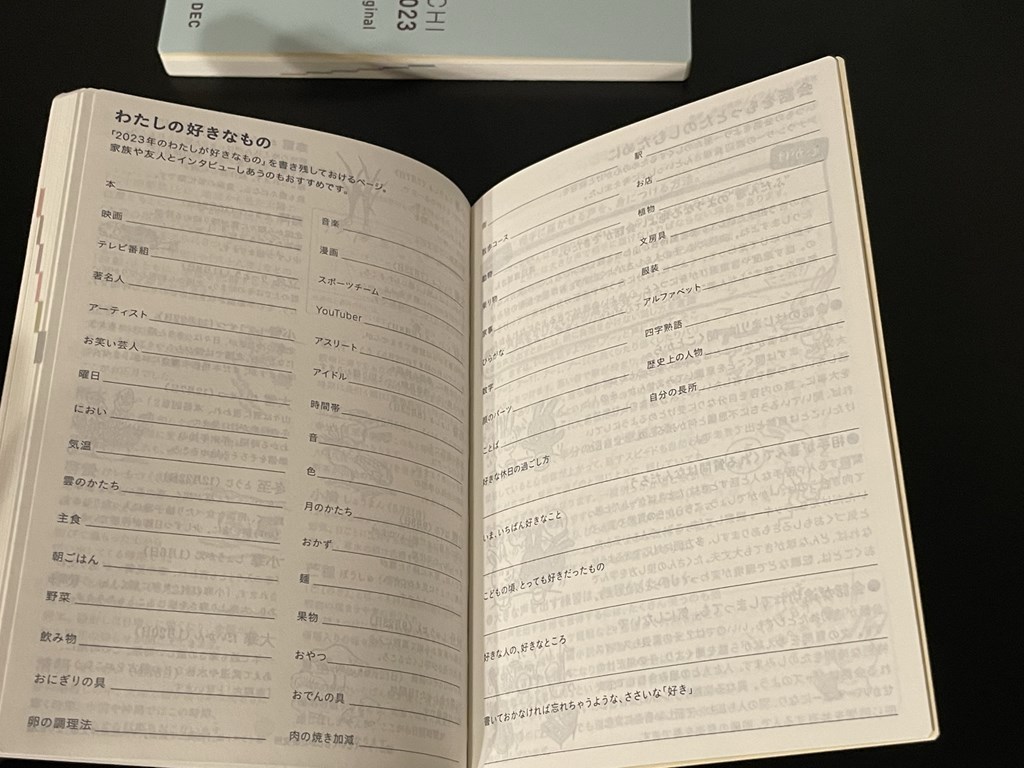 CHI
2023
ginal
DEC
わたしの好きなもの
「2023年のわたしが好きなもの」を書き残しておけるページ。
家族や友人とインタビューしあうのもおすすめです。
本
映画
テレビ番組
著名人
アーティスト
お笑い芸人
曜日
におい
気温
雲のかたち
主食
朝ごはん
野菜
飲み物
おにぎりの具
卵の調理法
音楽
漫画
スポーツチーム
YouTuber
アスリート
アイドル
時間帯
音
色
月のかたち
おかず
麺
果物
おやつ
おでんの具
肉の焼き加減
コース
動物
乗り物
ひらがな
数字
顔のパーツ
ことば
好きな休日の過ごし方
いま、いちばん好きなこと
こどもの頃、とっても好きだったもの
好きな人の、好きなところ
書いておかなければ忘れちゃうような、ささいな「好き」
駅
お店
植物
文房具
服装
アルファベット
四字熟語
歴史上の人物
自分の長所